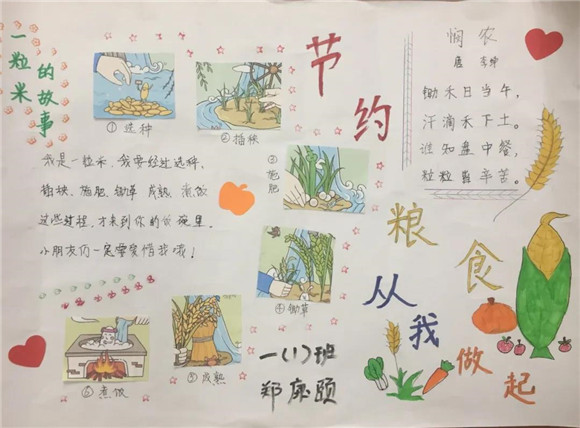 一粒米
的故事
①选种
②插秧
我是一粒米，我要经过选种、
插秧、施肥、锄草、成熟、煮饭
这些过程，才来到你的饭碗里。
小朋友们一定要爱惜我哦！
③施肥
④锄草
⑤成熟
⑥煮饭
节约
粮食
从我做起
悯农
唐 李绅
锄禾日当午，
汗滴禾下土。
谁知盘中餐，
粒粒皆辛苦。
一(1)班
郑